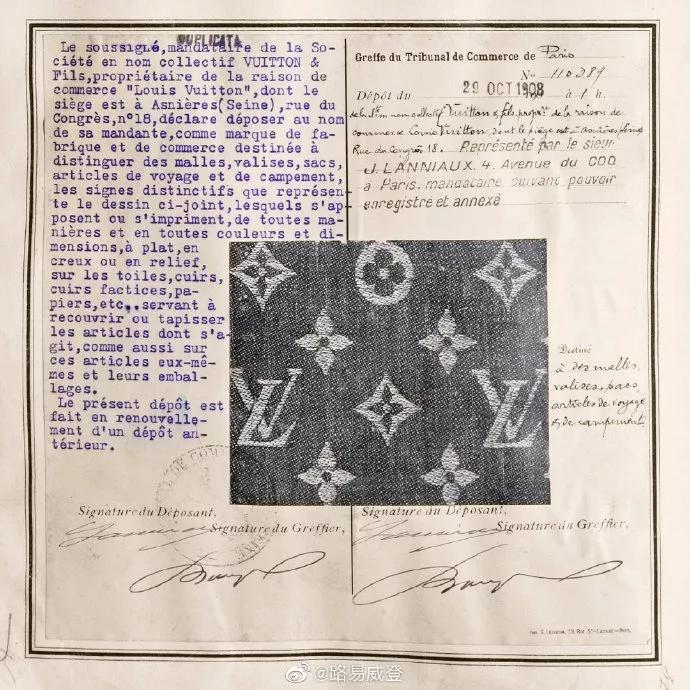 DUPLICATA
Le soussigné,mandataire de la So-
ciété en nom collectif VUITTON &
Fils,propriétaire de la raison de
commerce "Louis Vuitton",dont le
siège est à Asnières(Seine),rue du
Congrès,n°18,déclare déposer au nom
de sa mandante,comme marque de fa-
brique et de commerce destinée à
distinguer des malles,valises,sacs,
articles de voyage et de campement,
les signes distinctifs que représen-
te le dessin ci-joint,lesquels s'ap-
posent ou s'impriment,de toutes ma-
nières et en toutes couleurs et di-
mensions,à plat,en
creux ou en relief,
sur les toiles,cuirs,
cuirs factices,pa-
piers,etc..servant à
recouvrir ou tapisser
les articles dont s'a-
git,comme aussi sur
ces articles eux-mê-
mes et leurs embal-
lages.
Le présent dépôt est
fait en renouvelle-
ment d'un dépôt an-
térieur.
Signature du Déposant,
Signature du Greffier,
Greffe du Tribunal de Commerce de Paris
N° 110.289
Dépôt du 29 OCT 1908 à 1 h.
de la Sté en nom collectif Vuitton & fils, propre de la raison de
commerce Louis Vuitton, dont le siège est à Asnières Seine
Rue du Congrès 18. Représenté par le sieur
J. LANNIAUX. 4. Avenue du COQ
à Paris. mandataire suivant pouvoir
enregistré et annexé
LV
LV
Destiné
à des malles,
valises, sacs,
articles de voyage
& de campement
Signature du Déposant,
Signature du Greffier,
@路易威登